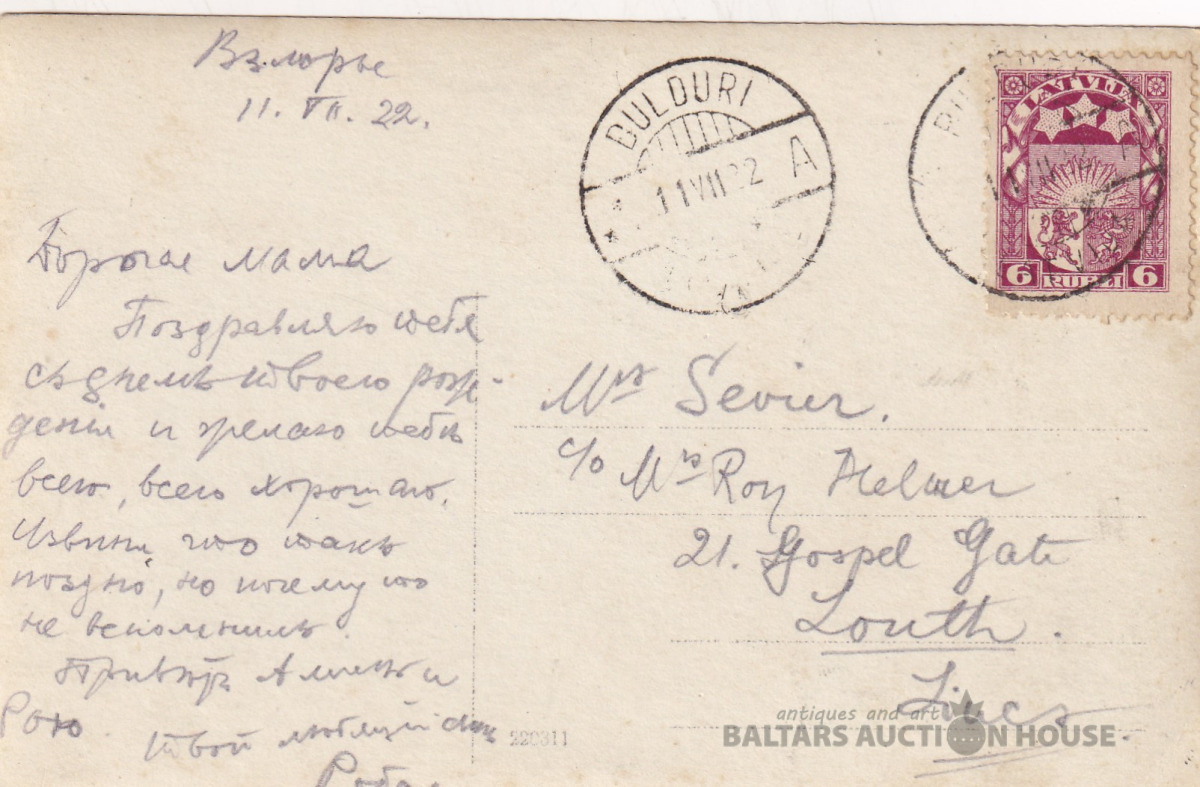 Взморье
11. VII. 22.
Дорогая мама
Поздравляю тебя
съ днемъ твоего рож-
денія и желаю тебѣ
всего, всего хорошаго.
Извини, что такъ
поздно, но почему то
не вспомнилъ.
Привѣтъ и
Рою.
твой любящій сынъ
BULDURI
A
11 VII 22
LATVIJA
6 RUBLI 6
Mrs Sevier.
c/o Mrs Roy Helmer
21. Gospel Gate
Louth.
Lincs
220311
antiques and art
BALTARS AUCTION HOUSE